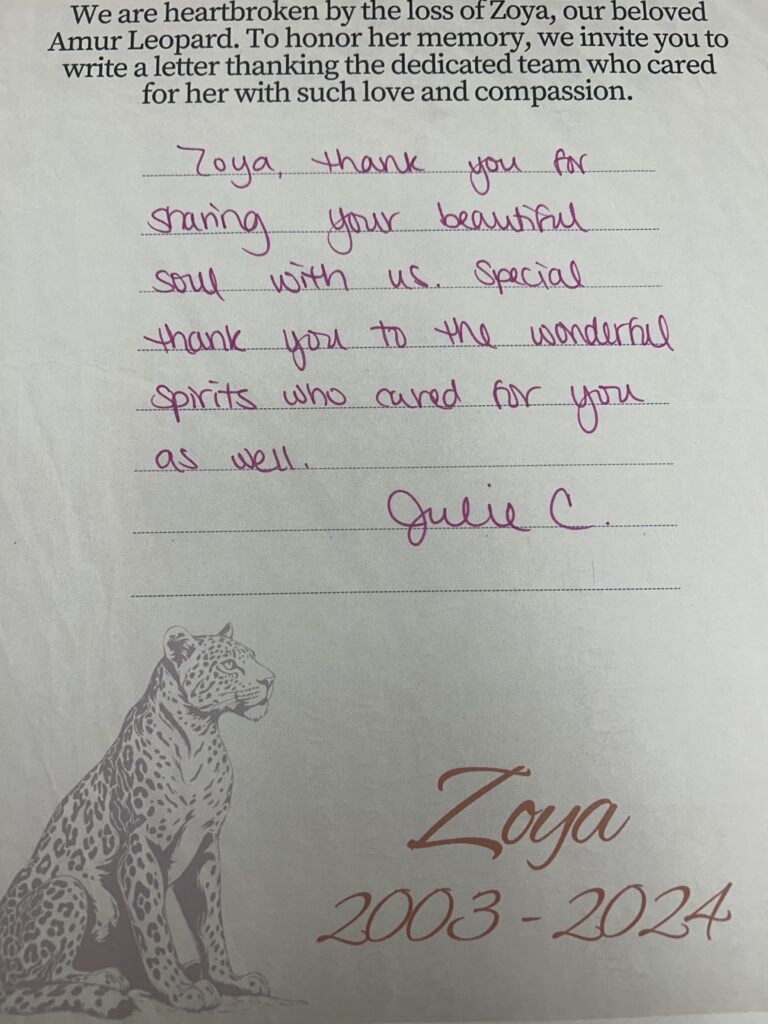 We are heartbroken by the loss of Zoya, our beloved
Amur Leopard. To honor her memory, we invite you to
write a letter thanking the dedicated team who cared
for her with such love and compassion.
Zoya, thank you for
sharing your beautiful
soul with us. Special
thank you to the wonderful
spirits who cared for you
as well.
Julie C.
Zoya
2003 - 2024